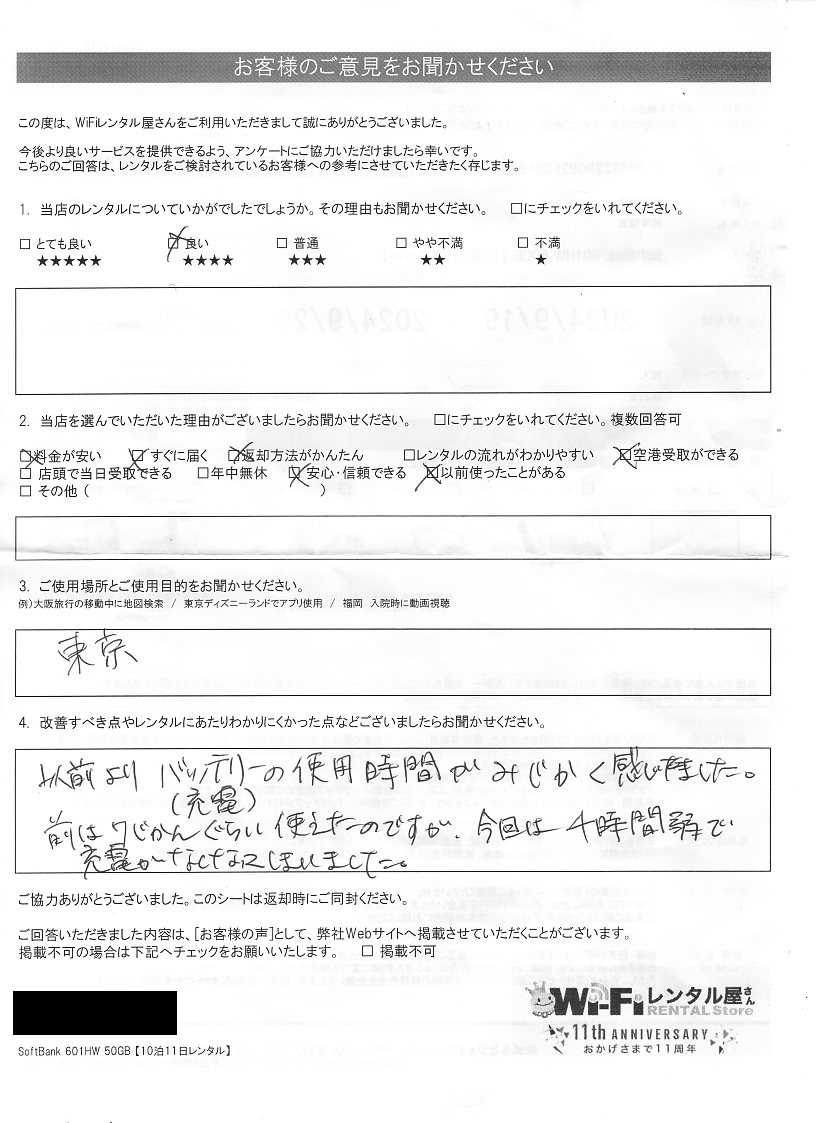 お客様のご意見をお聞かせください
この度は、WiFiレンタル屋さんをご利用いただきまして誠にありがとうございました。
今後より良いサービスを提供できるよう、アンケートにご協力いただけましたら幸いです。
こちらのご回答は、レンタルをご検討されているお客様への参考にさせていただきたく存じます。
1. 当店のレンタルについていかがでしたでしょうか。その理由もお聞かせください。 □にチェックをいれてください。
□ とても良い ☒ 良い □ 普通 □ やや不満 □ 不満
★★★★★ ★★★★ ★★★ ★★ ★
2. 当店を選んでいただいた理由がございましたらお聞かせください。 □にチェックをいれてください。複数回答可
☒料金が安い ☒すぐに届く ☒返却方法がかんたん □レンタルの流れがわかりやすい ☒空港受取ができる
□ 店頭で当日受取できる □年中無休 ☒ 安心・信頼できる ☒以前使ったことがある
□ その他 ( )
3. ご使用場所とご使用目的をお聞かせください。
例)大阪旅行の移動中に地図検索 / 東京ディズニーランドでアプリ使用 / 福岡 入院時に動画視聴
東京
4. 改善すべき点やレンタルにあたりわかりにくかった点などございましたらお聞かせください。
以前より バッテリーの使用時間がみじかく感じました。
(充電)
前は7じかんぐらい使えたのですが、今回は4時間弱で
充電がなくなってしまいました。
ご協力ありがとうございました。このシートは返却時にご同封ください。
ご回答いただきました内容は、[お客様の声]として、弊社Webサイトへ掲載させていただくことがございます。
掲載不可の場合は下記へチェックをお願いいたします。 □ 掲載不可
Wi-Fiレンタル屋さん
RENTAL Store
11th ANNIVERSARY
おかげさまで11周年
SoftBank 601HW 50GB【10泊11日レンタル】